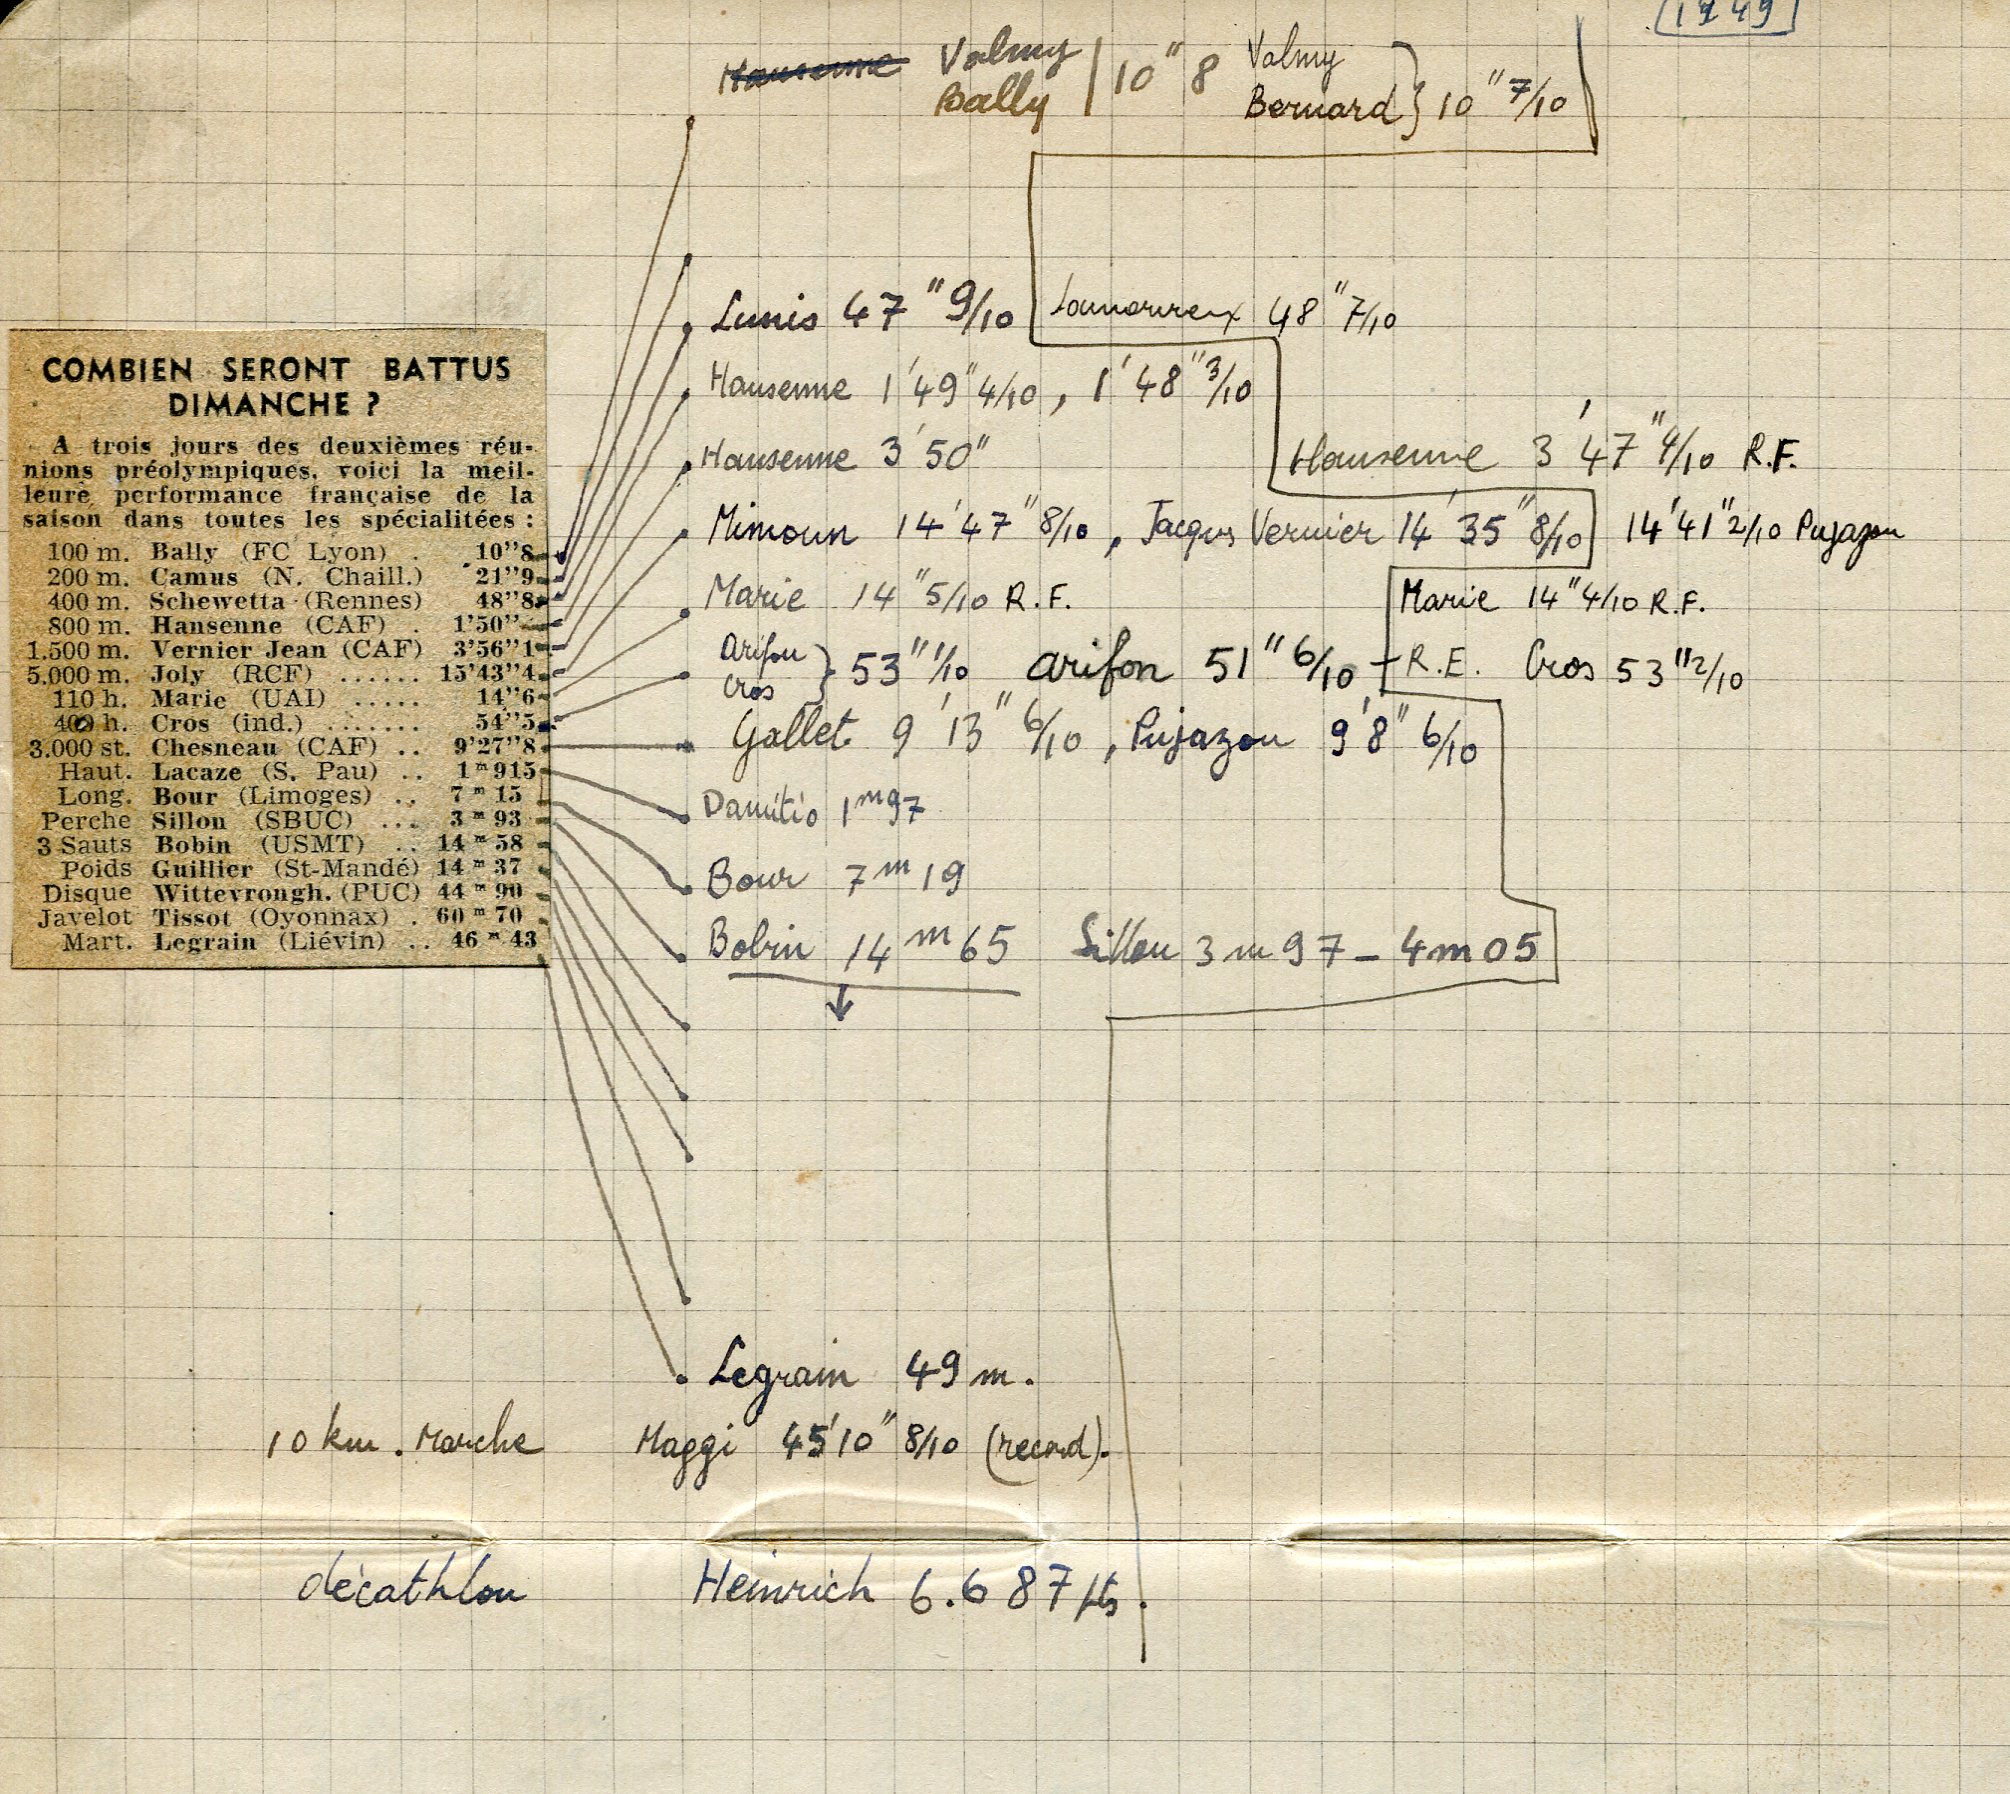 1949
Hansenne Valmy | 10" 8 Valmy } 10" 7/10
Bally Bernard
Lunis 47" 9/10 Lamoureux 48" 7/10
Hansenne 1'49" 4/10, 1'48" 3/10
Hansenne 3'50" Hansenne 3'47" 4/10 R.F.
Mimoun 14'47" 8/10, Jacques Vernier 14'35" 8/10 14'41" 2/10 Pujazon
Marie 14" 5/10 R.F. Marie 14" 4/10 R.F.
Arifon } 53" 1/10 Arifon 51" 6/10 - R.E. Cros 53" 2/10
Cros
Gallet 9'13" 6/10, Pujazon 9'8" 6/10
Damitio 1m97
Bour 7m19
Bobin 14m65 Sillon 3m97 - 4m05
↓
COMBIEN SERONT BATTUS
DIMANCHE ?
A trois jours des deuxièmes réu-
nions préolympiques, voici la meil-
leure performance française de la
saison dans toutes les spécialitées :
100 m. Bally (FC Lyon) . 10"8
200 m. Camus (N. Chaill.) 21"9
400 m. Schewetta (Rennes) 48"8
800 m. Hansenne (CAF) . 1'50"
1.500 m. Vernier Jean (CAF) 3'56"1
5.000 m. Joly (RCF) ...... 15'43"4
110 h. Marie (UAI) ..... 14"6
400 h. Cros (ind.) ....... 54"5
3.000 st. Chesneau (CAF) .. 9'27"8
Haut. Lacaze (S. Pau) .. 1m915
Long. Bour (Limoges) .. 7m15
Perche Sillon (SBUC) ... 3m93
3 Sauts Bobin (USMT) .. 14m58
Poids Guillier (St-Mandé) 14m37
Disque Wittevrongh. (PUC) 44m90
Javelot Tissot (Oyonnax) . 60m70
Mart. Legrain (Liévin) .. 46m43
Legrain 49 m.
10 km. Marche Maggi 45'10" 8/10 (record).
décathlon Heinrich 6.687 pts.